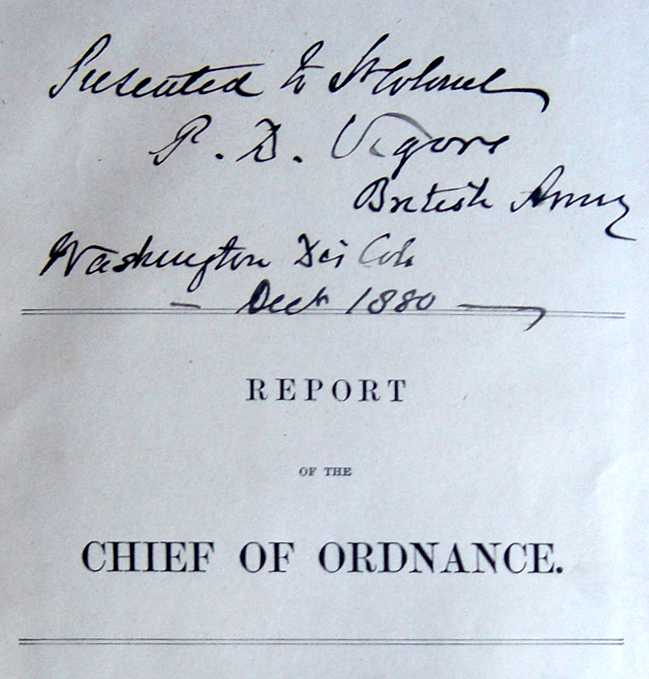 Presented to Lt Colonel
P. D. Vigors
British Army
Washington Dis Col.
— Decr 1880 —
REPORT
OF THE
CHIEF OF ORDNANCE.